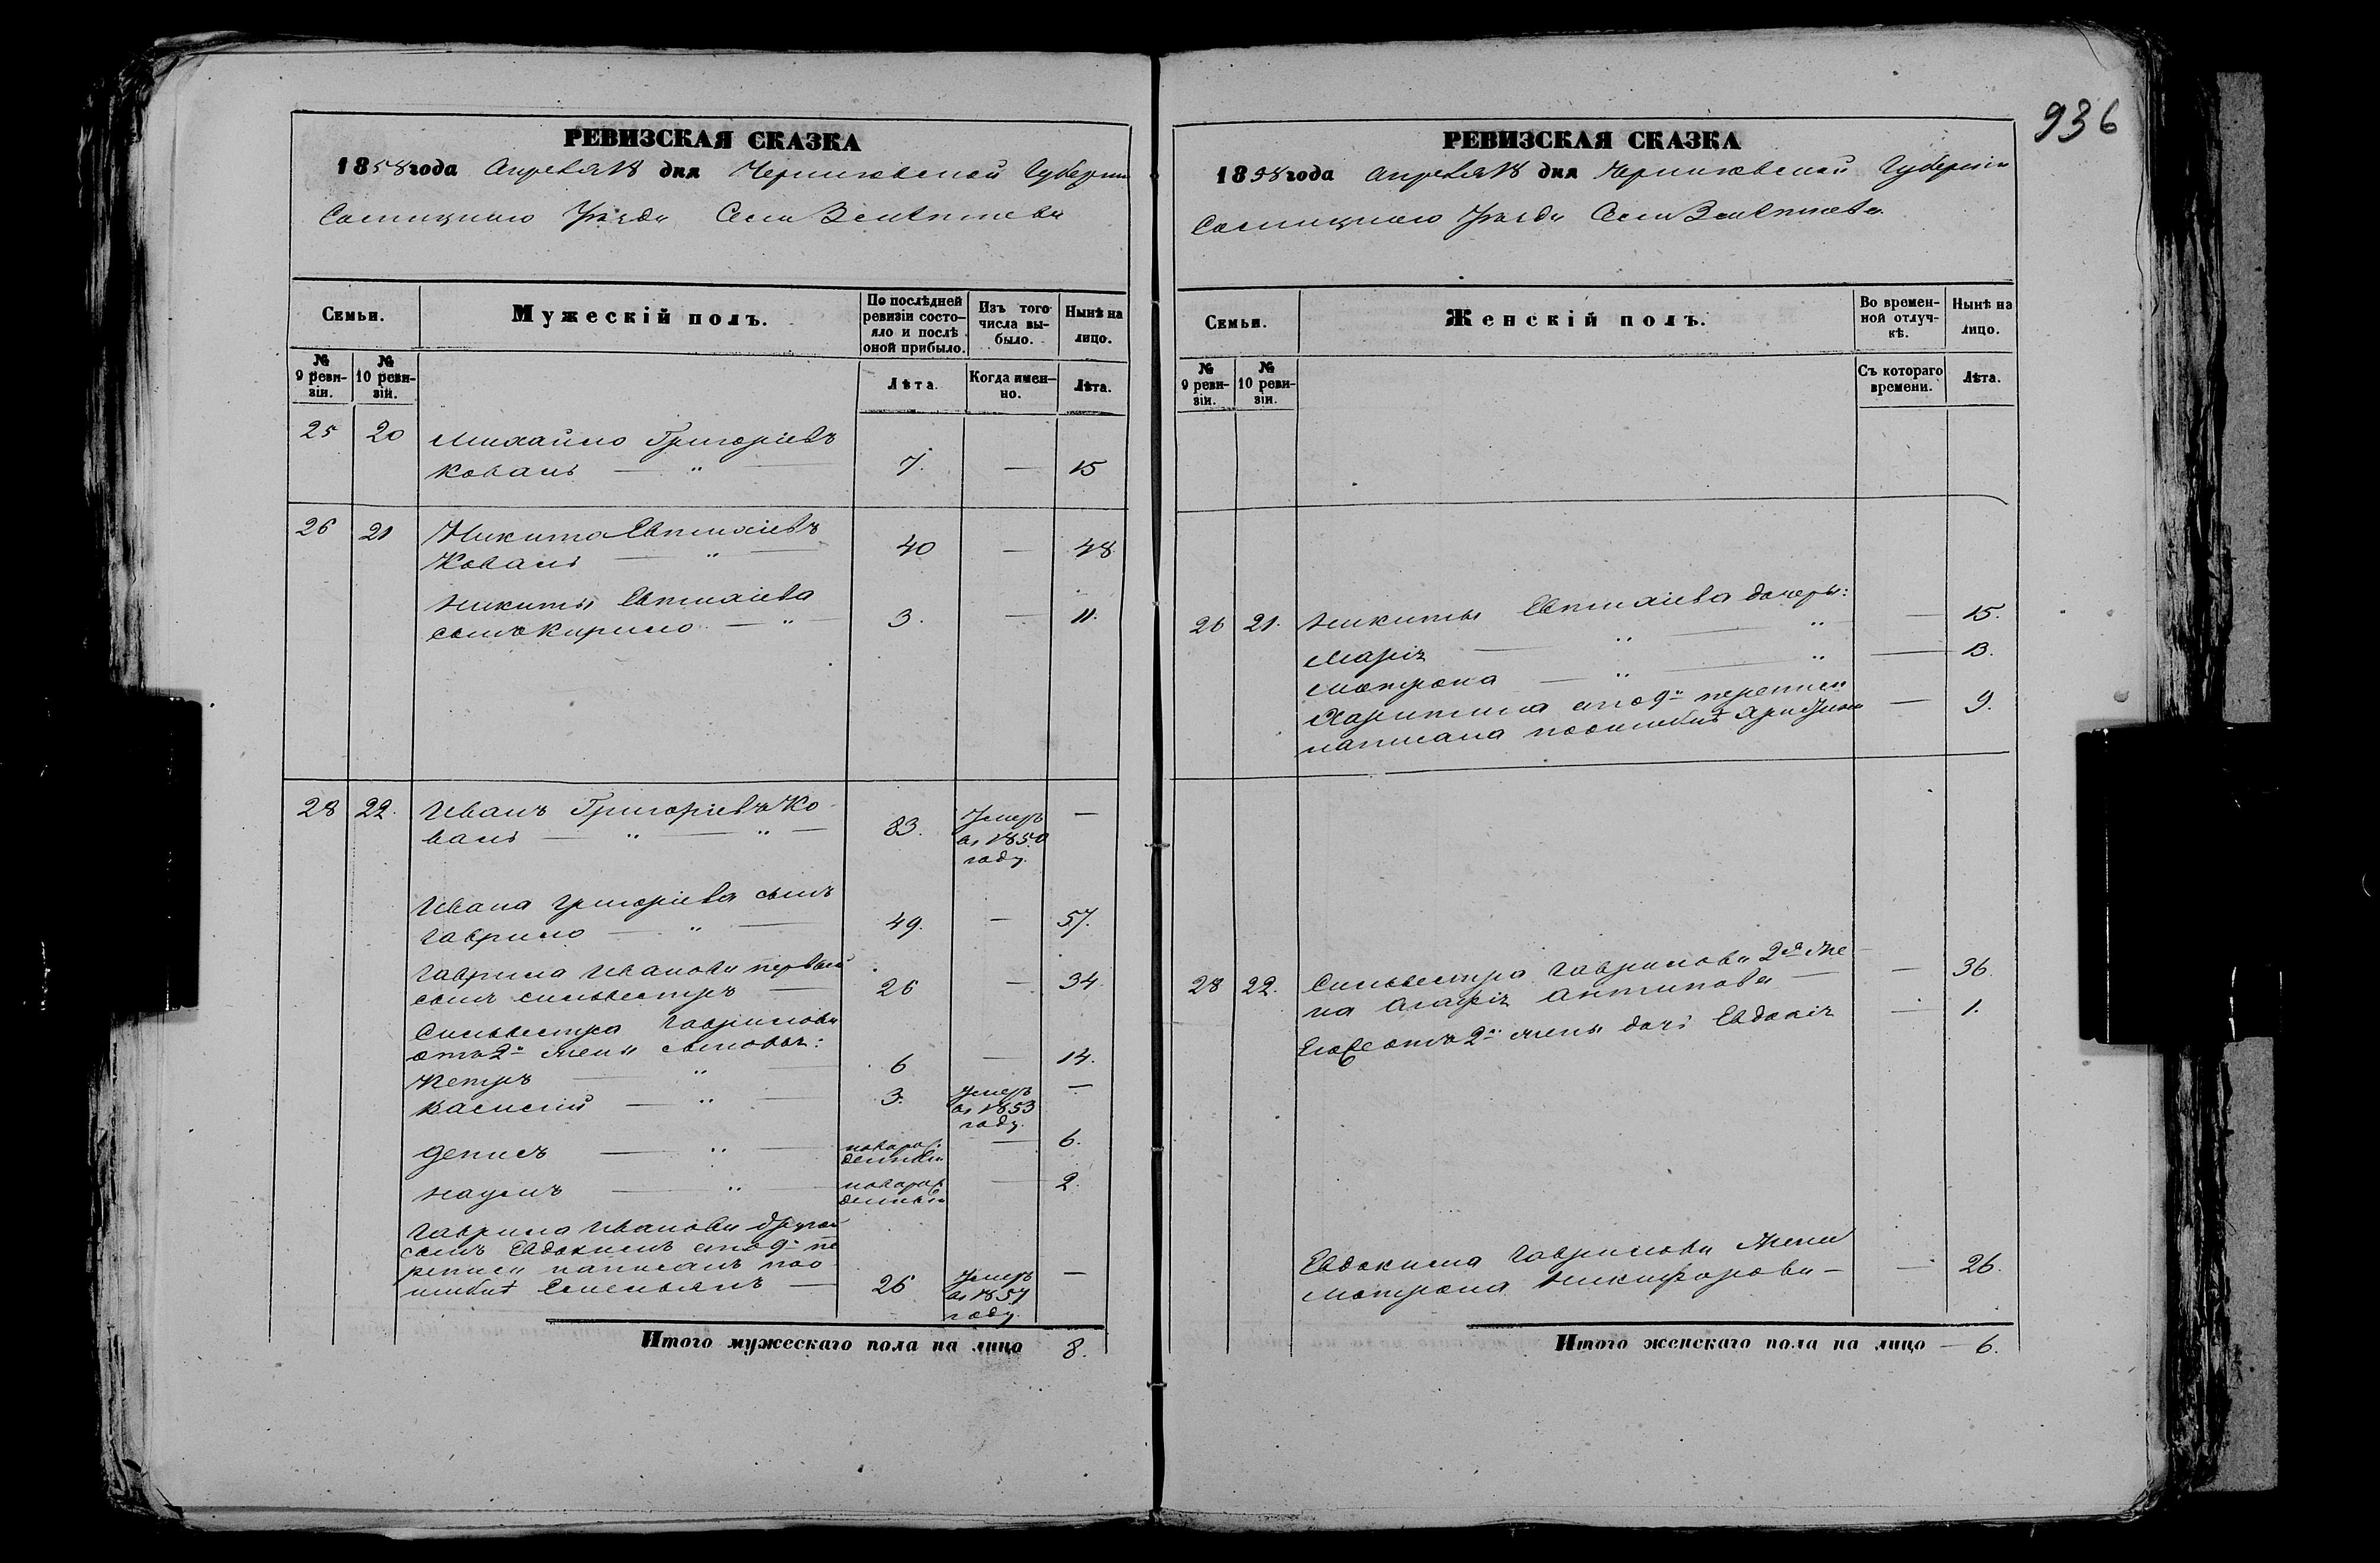 936
РЕВИЗСКАЯ СКАЗКА
1858 года Апреля 18 дня Черниговской Губерніи
Сосницкаго Уѣзда Села
Семьи.
Мужескій полъ.
По послѣдней ревизіи состояло и послѣ оной прибыло.
Изъ того числа выбыло.
Нынѣ на лицо.
№ 9 ревизіи.
№ 10 ревизіи.
Лѣта.
Когда именно.
Лѣта.
25 20 Михайло Григоріевъ
Коваль — " — 7. — 15
26 21 Никита Евтихіевъ
Коваль — " — 40 — 48
Никиты Евтихіева
сынъ Кирило — " — 3. — 11.
28 22. Иванъ Григоріевъ Ко-
валь — " — " — 83. Умеръ въ 1850 году. —
Ивана Григоріева сынъ
Гаврило — " — 49. — 57.
Гаврила Иванова первый
сынъ Сильвестръ — 26 — 34
Сильвестра Гаврилова
отъ 2й жены сыновья:
Петръ — " — 6 — 14.
Василий — " — 3. Умеръ въ 1853 году. —
Денисъ — " — новорожденный — 6.
Наумъ — " — новорожденный — 2.
Гаврила Иванова другой
сынъ Евдокимъ а по 9й пе
реписи написанъ поо
шибкѣ Емельянъ — 26 Умеръ въ 1857 году. —
Итого мужескаго пола на лицо 8.
РЕВИЗСКАЯ СКАЗКА
1858 года Апреля 18 дня Черниговской Губерніи
Сосницкаго Уѣзда Села
Семьи.
Женскій полъ.
Во временной отлучкѣ.
Нынѣ на лицо.
№ 9 ревизіи.
№ 10 ревизіи.
Съ котораго времени.
Лѣта.
26 21. Никиты Евтихіева дочери:
Марія — " — " — 15.
Мотрона — " — " — 13.
Харитина а по 9й переписи
написана поошибкѣ — 9.
28 22. Сильвестра Гаврилова 2я же-
на Марія Антипова — — 36.
Его же отъ 2й жены дочь Евдокія — 1.
Евдокима Гаврилова жена
Мотрона Никифорова — — 26.
Итого женскаго пола на лицо — 6.